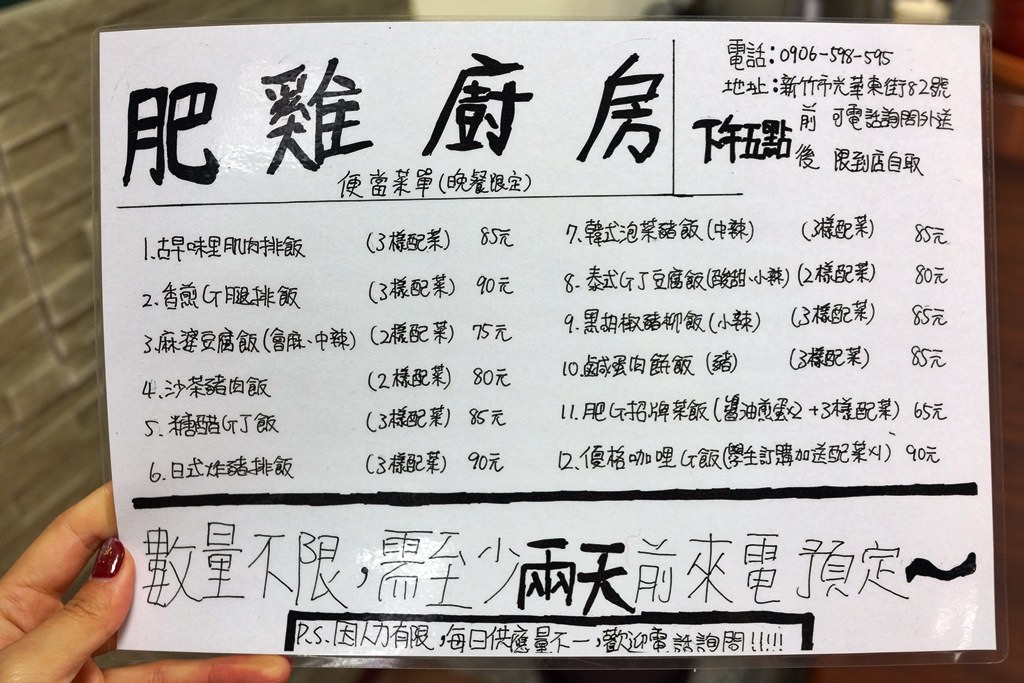 肥雞廚房
便當菜單(晚餐限定)
電話:0906-598-595
地址:新竹市光華東街82號
下午五點 前 可電話詢問外送
後 限到店自取
1.古早味里肌肉排飯 (3樣配菜) 85元
2.香煎G腿排飯 (3樣配菜) 90元
3.麻婆豆腐飯(會麻、中辣) (2樣配菜) 75元
4.沙茶豬肉飯 (2樣配菜) 80元
5.糖醋GJ飯 (3樣配菜) 85元
6.日式炸豬排飯 (3樣配菜) 90元
7.韓式泡菜豬飯(中辣) (3樣配菜) 85元
8.泰式GJ豆腐飯(酸甜、小辣) (2樣配菜) 80元
9.黑胡椒豬柳飯(小辣) (3樣配菜) 85元
10.鹹蛋肉餅飯(豬) (3樣配菜) 85元
11.肥G招牌菜飯(醬油煎蛋x2+3樣配菜) 65元
12.優格咖哩G飯(學生訂購加送配菜x1) 90元
數量不限,需至少兩天前來電預定~
P.S.因人力有限,每日供應量不一,歡迎電話詢問!!!!!